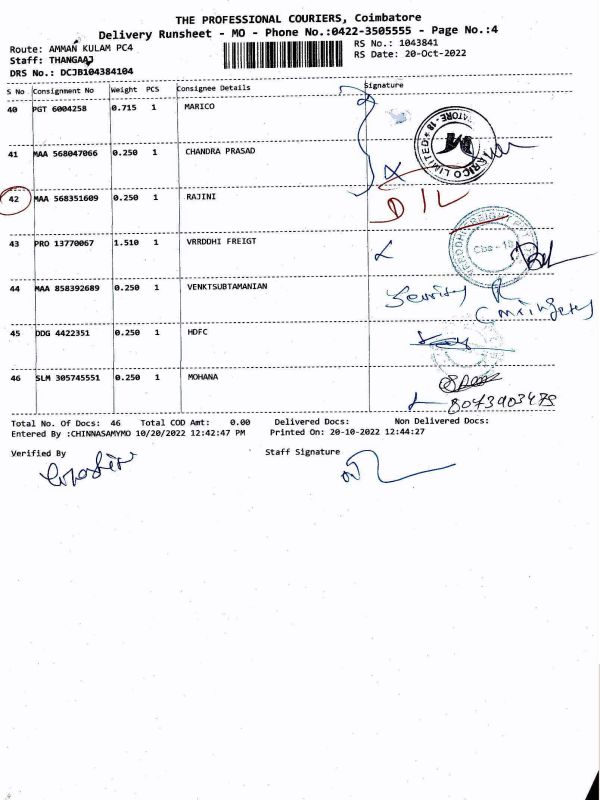 THE PROFESSIONAL COURIERS, Coimbatore
Delivery Runsheet - MO - Phone No.:0422-3505555 - Page No.:4
Route: AMMAN KULAM PC4
RS No.: 1043841
Staff: THANGARJ
RS Date: 20-Oct-2022
DRS No.: DCJB104384104
S No Consignment No Weight PCS Consignee Details Signature
40 PGT 6004258 0.715 1 MARICO
41 MAA 568047066 0.250 1 CHANDRA PRASAD
MARICO LIMITED
42 MAA 568351609 0.250 1 RAJINI D/L
43 PRO 13770067 1.510 1 VRRDDHI FREIGT
Cbe - 18
44 MAA 858392689 0.250 1 VENKTSUBTAMANIAN
45 DDG 4422351 0.250 1 HDFC
46 SLM 305745551 0.250 1 MOHANA
8073903478
Total No. Of Docs: 46 Total COD Amt: 0.00 Delivered Docs: Non Delivered Docs:
Entered By :CHINNASAMYMO 10/20/2022 12:42:47 PM Printed On: 20-10-2022 12:44:27
Verified By Staff Signature